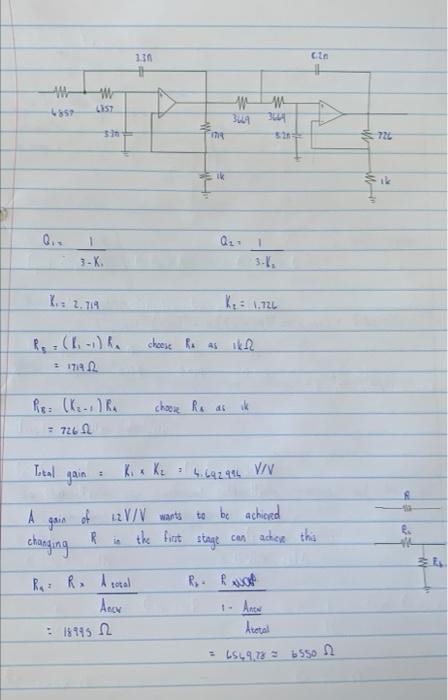 3.3n 6.2n
4857 4857 3669 3669
3.3n 1719 8.2n 726
1k 1k
Q₁ = 1 / 3-K₁ Q₂ = 1 / 3-K₂
K₁ = 2.719 K₂ = 1.726
R_B = (K₁ -1) R_A choose R_A as 1kΩ
= 1719 Ω
R_B = (K₂-1) R_A choose R_A as 1k
= 726 Ω
Total gain = K₁ x K₂ = 4.692994 V/V
A gain of 1.2 V/V wants to be achieved
changing R in the first stage can achieve this
R
Rₐ
R_b
Rₐ = R x A total / Anew R_b = R / 1 - Anew / Atotal
= 18995 Ω
= 6549.78 ≈ 6550 Ω